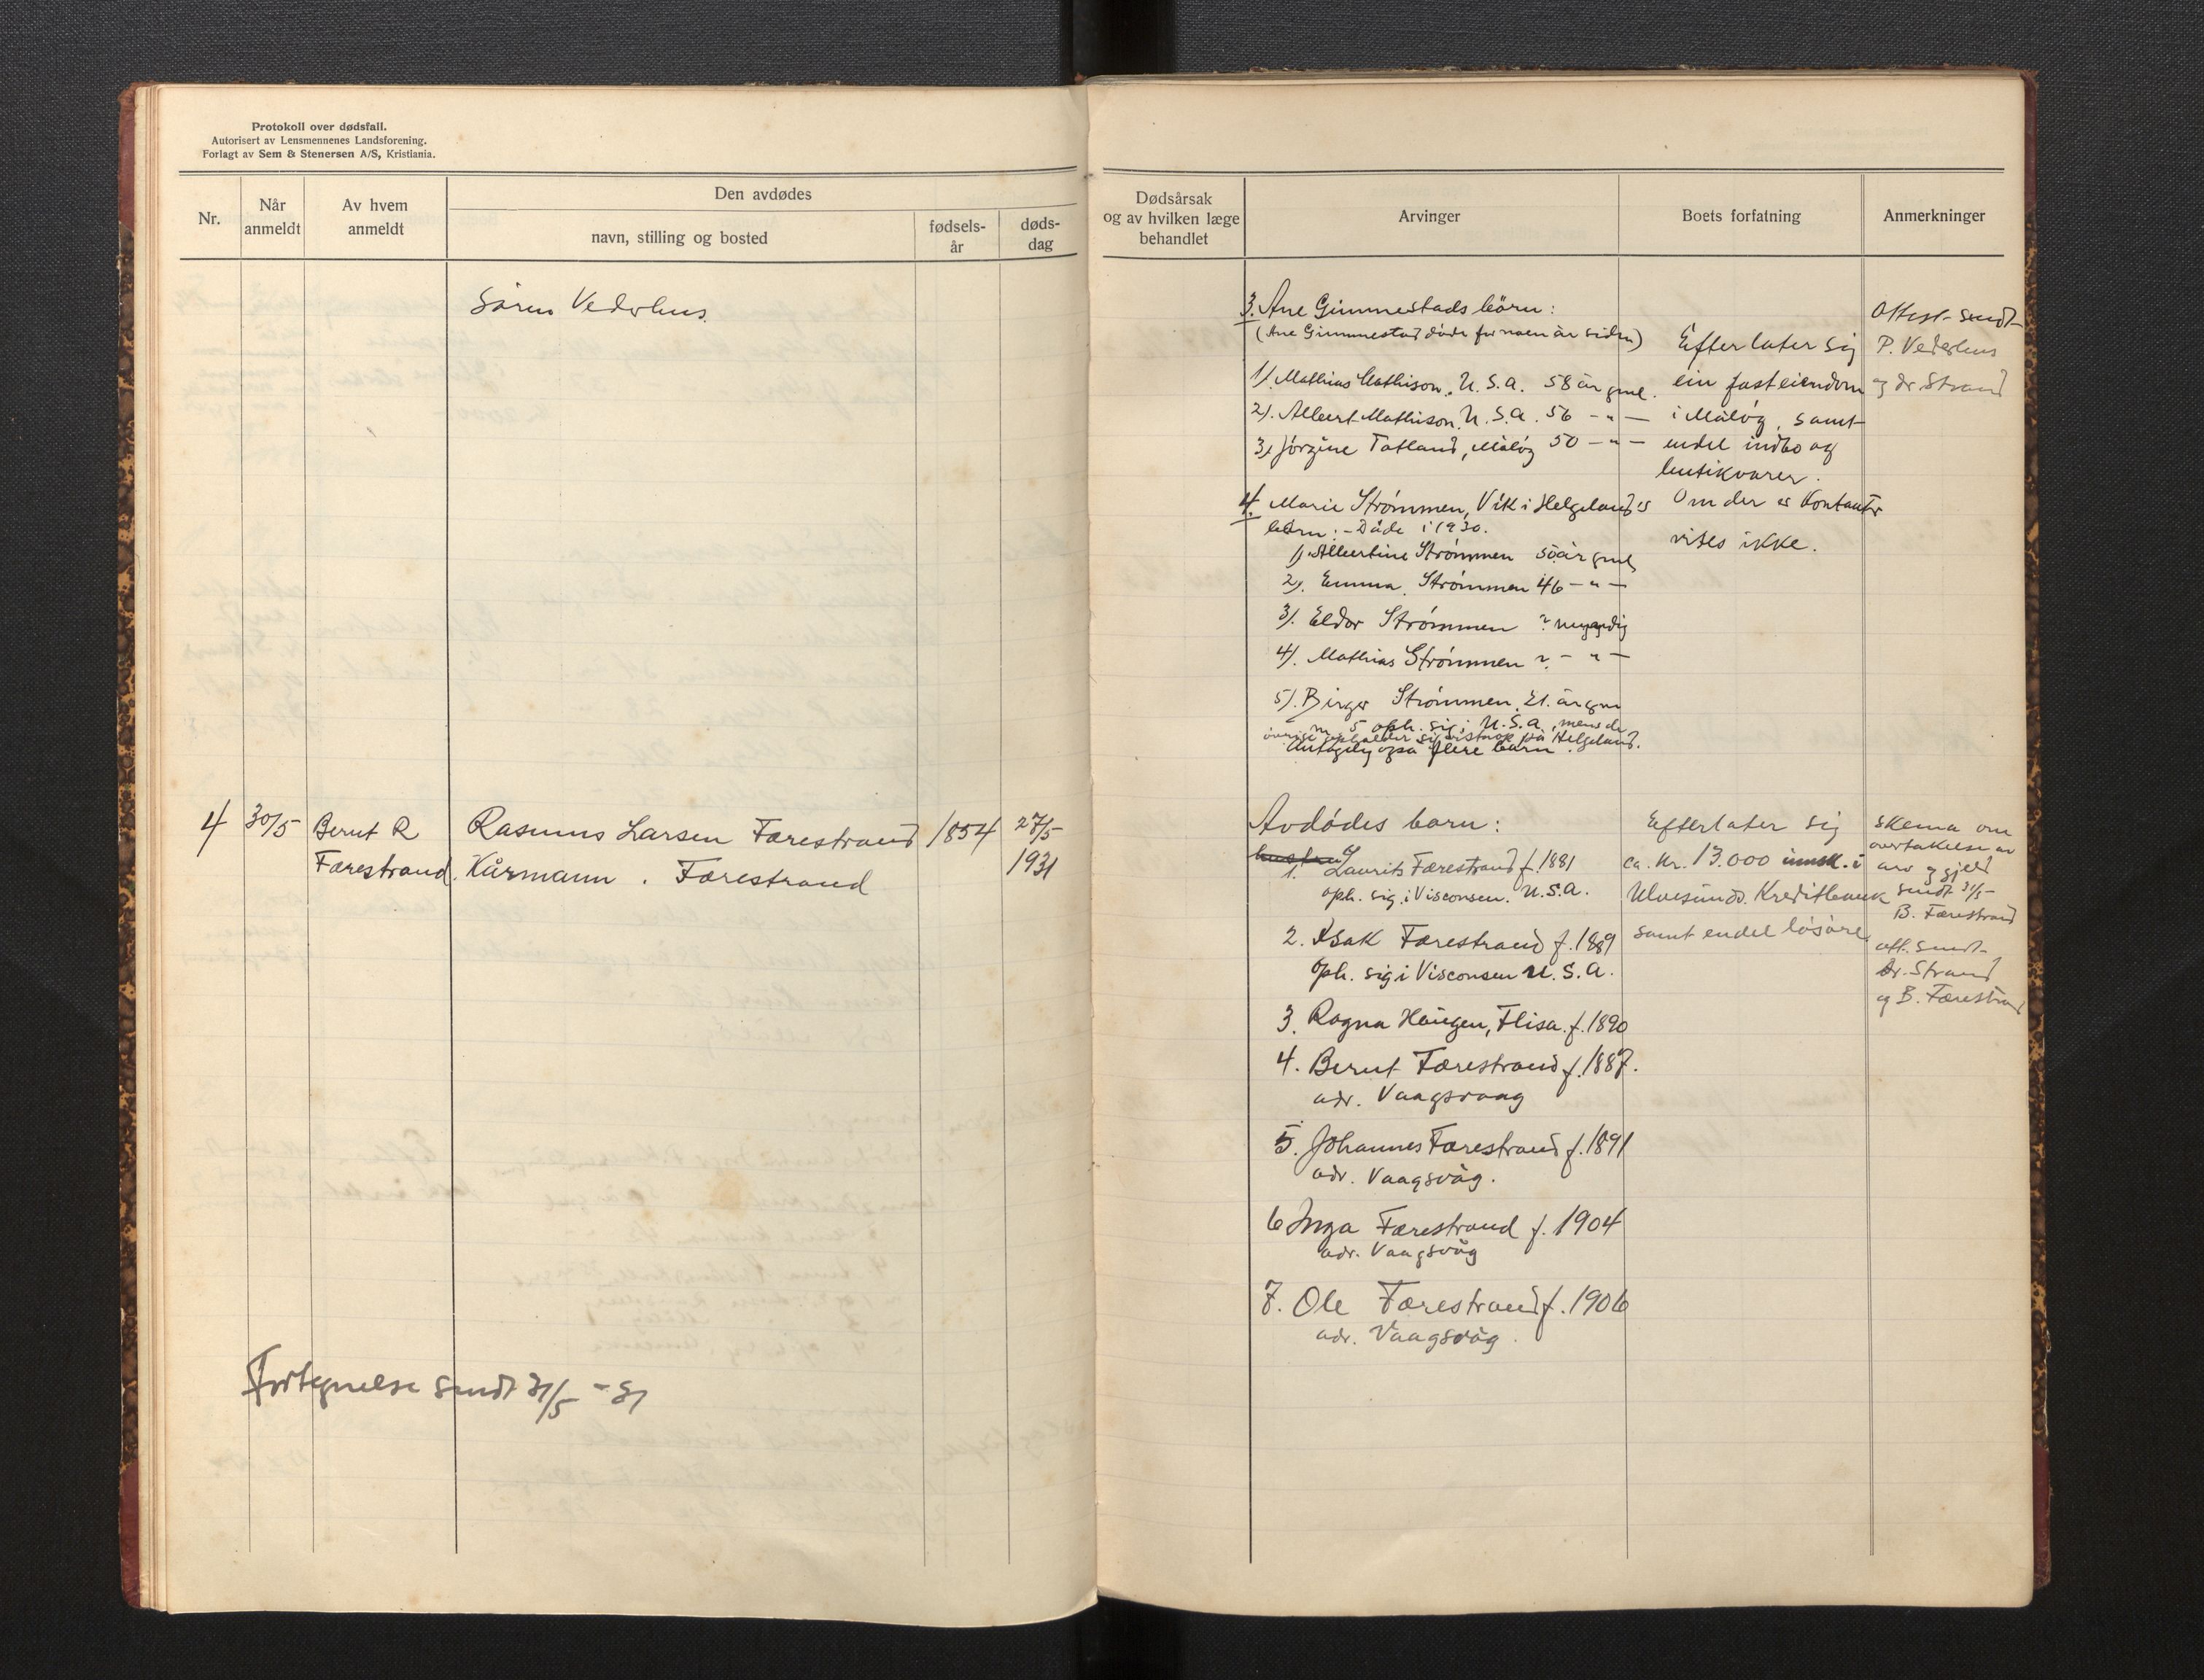 Protokoll over dødsfall.
Autorisert av Lensmennenes Landsforening.
Forlagt av Sem & Stenersen A/S, Kristiania.
Nr.
Når
anmeldt
Av hvem
anmeldt
Den avdødes
navn, stilling og bosted
fødsels-
år
døds-
dag
Søren Vederhus.
4 30/5 Bernt R Rasmus Larsen Færestrand 1854 27/5
Færestrand. Kårmann. Færestrand 1931
Fortegnelse sendt 31/5 - 31
Dødsårsak
og av hvilken læge
behandlet
Arvinger
Boets forfatning
Anmerkninger
3. Ane Gimmestads börn:
(Ane Gimmestad döde for noen år siden)
1). Mathias Mathison. U.S.A. 58 år gml.
2). Albert Mathison. U.S.A. 56 - " -
3) Jörgine Tatland, Måløy 50 - " -
4. Marie Strømmen, Vik i Helgeland's
börn: - Døde i 1930.
1) Albertine Strømmen 50 år gml
2). Emma Strømmen 46 - " -
3). Eldor Strømmen ? myndig
4). Mathias Strømmen ? - " -
5). Birger Strømmen 21. år gml
nr. 5 oph. sig i U.S.A., mens de
övrige opholder sig visstnok på Helgeland.
Antagelig også flere barn.
Efterlater sig
ein fasteiendom
i Måløy, samt
endel indbo og
butikvarer.
Om der er Kontanter
vites ikke.
Attest sendt
P. Vederhus
og dr. Strand
Avdødes barn:
hustru
1. Laurits Færestrand f. 1881
oph. sig. i Visconsen. U.S.A.
2. Isak Færestrand f. 1889
Oph. sig i Visconsen U.S.A.
3. Ragna Haugen, Flisa. f. 1890
4. Bernt Færestrand f. 1887.
adr. Vaagsvaag
5. Johannes Færestrand f. 1891
adr. Vaagsvåg.
6 Inga Færestrand f. 1904
adr. Vaagsvåg
7. Ole Færestrand f. 1906
adr. Vaagsvåg.
Efterlater sig
ca. Kr. 13.000 innsk. i
Ulvesunds. Kreditbank
samt endel løsøre
Skema om
overtakelse av
arv og gjeld
sendt 31/5
B. Færestrand
att. sendt
dr. Strand
og B. Færestrand